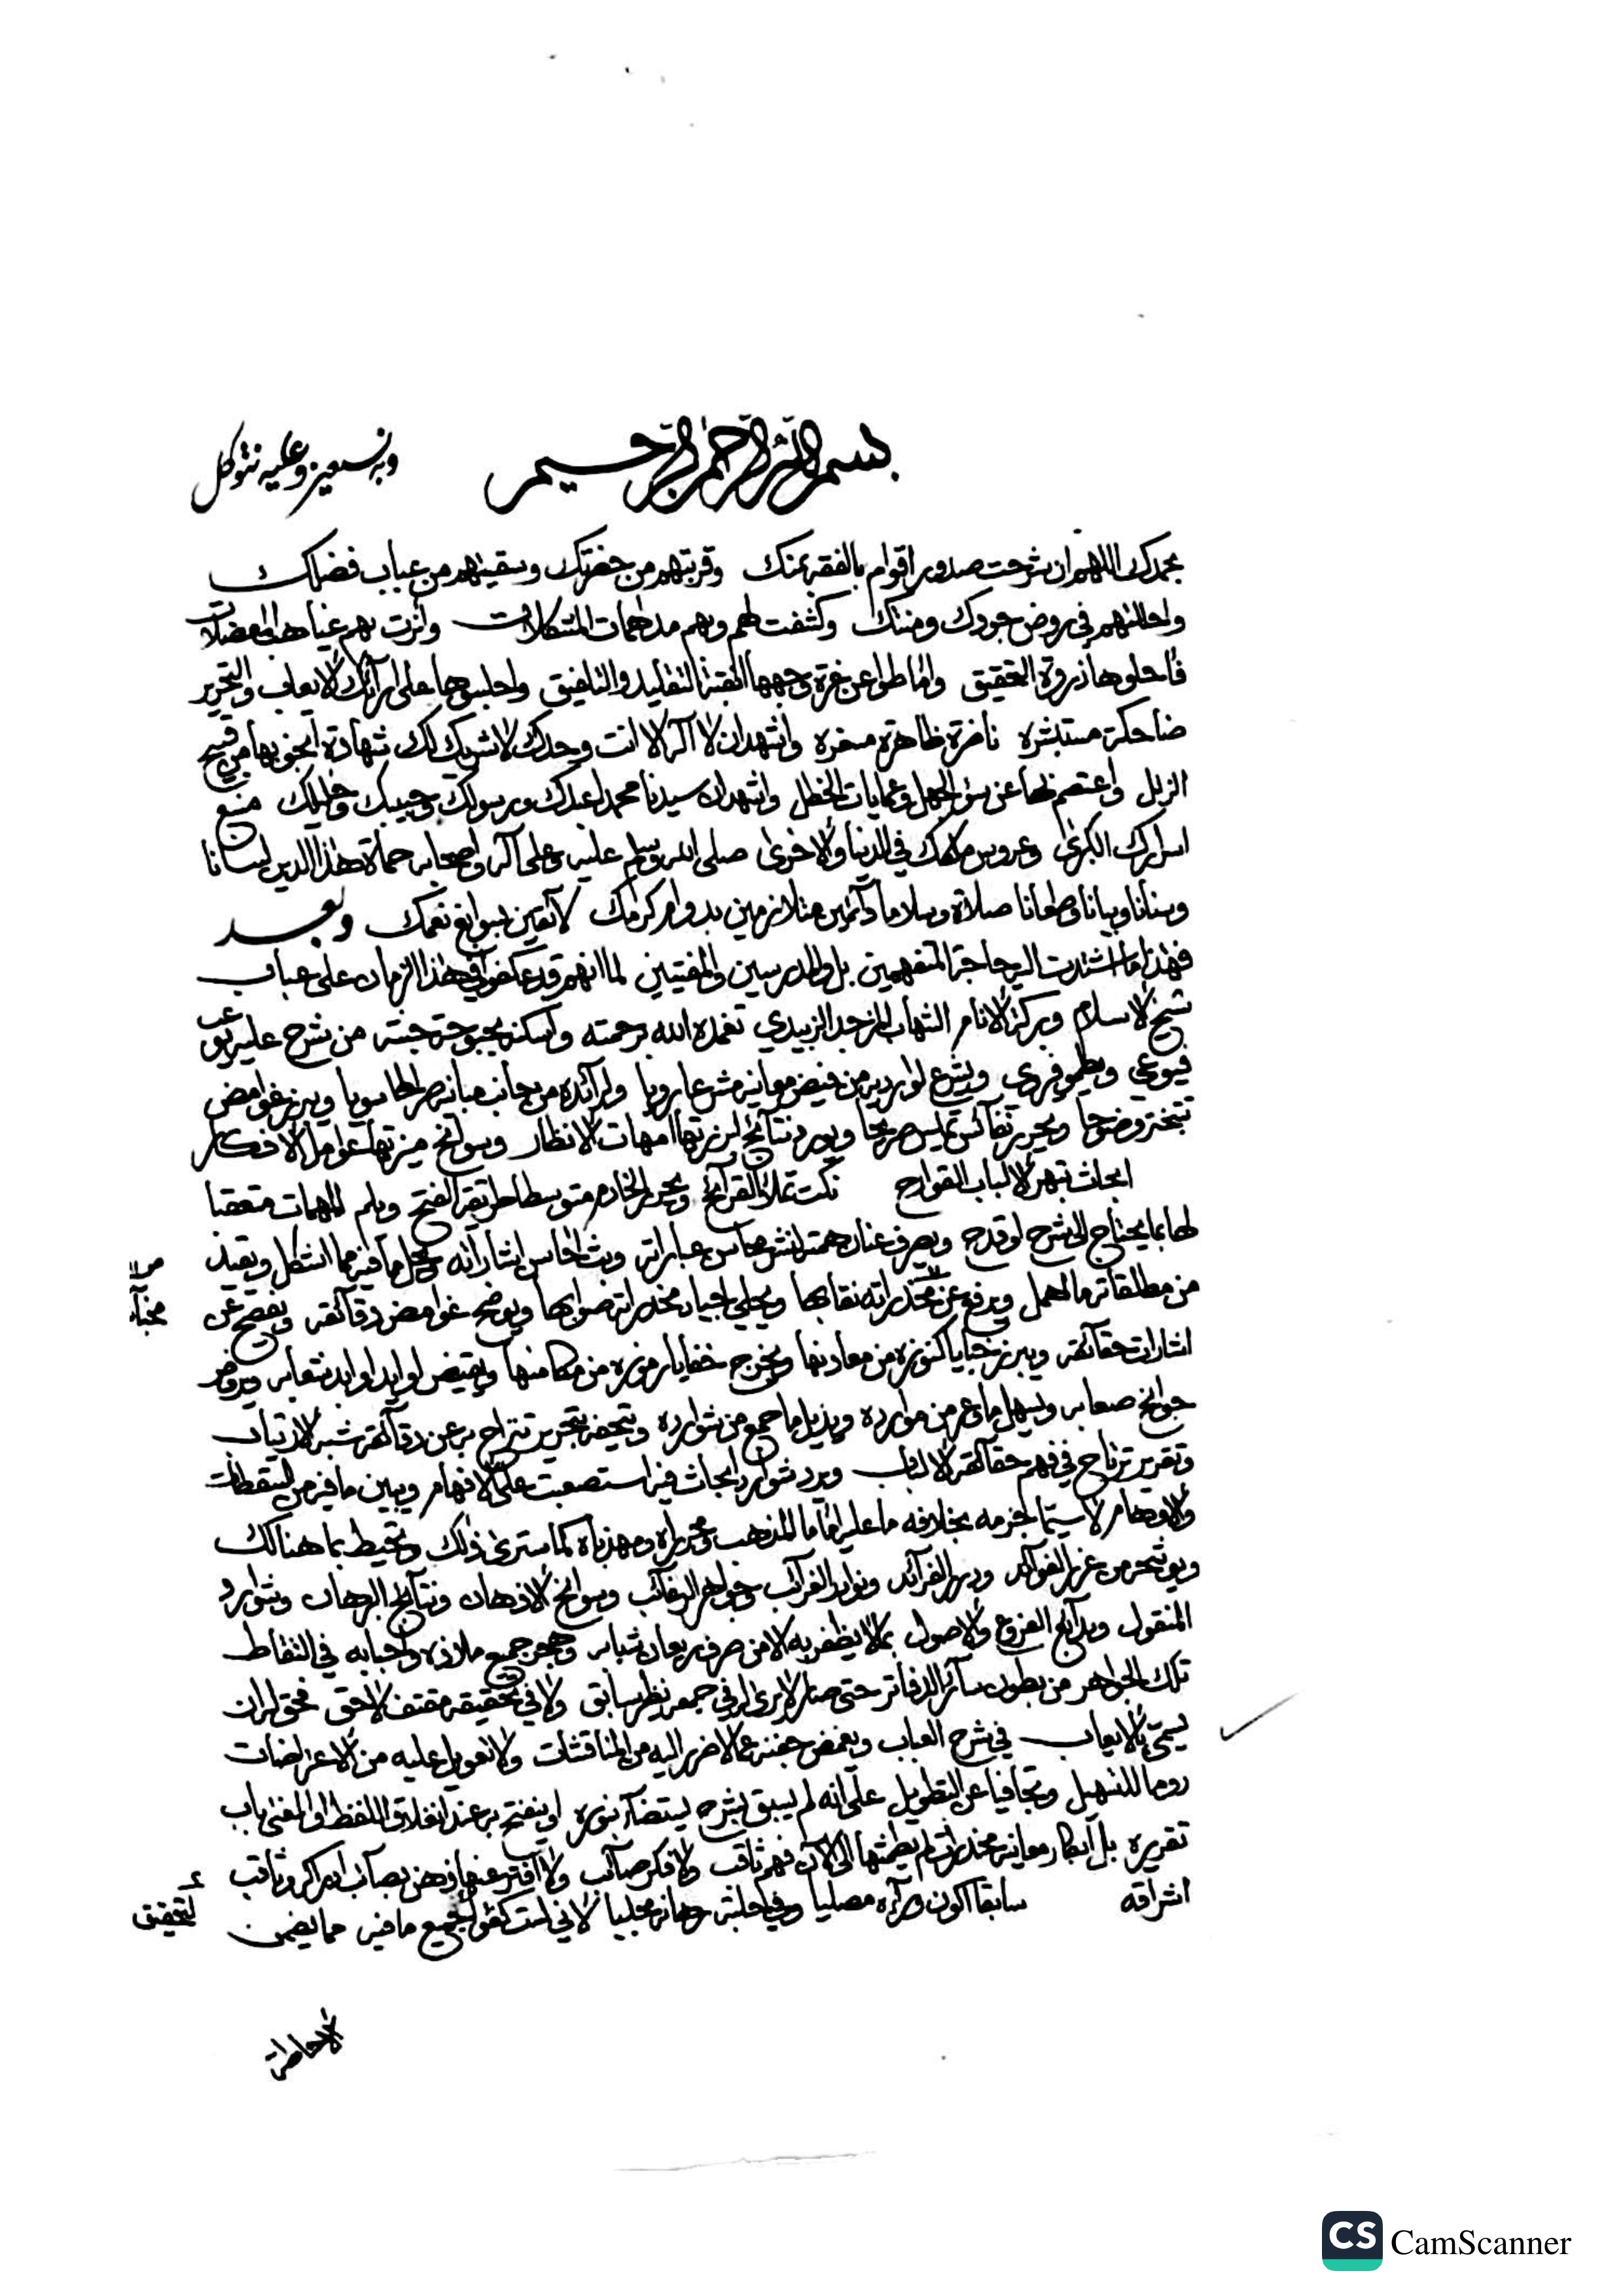 بسم الله الرحمن الرحيم وبه نستعين وعليه نتوكل
نحمدك اللهم ان شرحت صدور اقوام بالفقه بمنك وقربتهم من حضرتك وسقيتهم من عباب فضلك
واحللتهم في روض جودك ومنتك وكشفت لهم وبهم مدلهمات المشكلات وأنرت بهم غياهب المعضلات
فأحلوها ذروة التحقيق واماطوا عن غرة وجهها القته التقليد والتلفيق واجلسوها على ارآئك الايعاب والتحرير
ضاحكة مستبشره ناضرة ظاهرة مسفره واشهد ان لا اله الا انت وحدك لا شريك لك شهادة انجو بها من قبيح
الزلل واعتصم بها عن سؤ الجهل وعمايات الخطل واشهد ان سيدنا محمدا عبدك ورسولك وحبيبك وخليلك منبع
اسرارك الكبرى وعروس ملكك في الدنيا والاخرى صلى الله وسلم عليه وعلى آله واصحابه حماة هذا الدين لسانا
وسنانا وبيانا وطعانا صلاة وسلاما دآئمين متلازمين بدوام كرمك لآئقين بسوابغ نعمك وبعد
فهذا ما اشتدت اليه حاجة المتفهمين بل والمدرسين والمفتيين لما انهم قد عكفوا في هذا الزمان على عباب
شيخ الاسلام وبركة الانام الشهاب المزجد الزبيدي تغمده الله برحمته واسكنه بحبوحة جنته من شرح عليه يوعب
فيوعي ويطمو فيروي ويشرع لوارديه من فيض معانيه مشرعا رويا ولرائده من جانب مبانيه صراطا سويا ويبرز غوامض
تتبختر وضوحا ويحرر نفآئس تميس صريحا ويورد نتآئج ابرزتها امهات الانظار وسوانح ميزتها عوامل الافكار
ابحاث تبهر الالباب القوادح نكت تملأ القرآئح وبحر زاخر متوسطا طريقة الفتح ويلم المهمات متعقبا
لها بما يحتاج الى شرح او قدح ويصرف عنان همته لنشر محاسن عباراته وبث احاسن اشاراته ويحل ما فيه مما اشكل ويقيد
من مطلقاته ما اهمل ويرفع عن مخدراته نقابها ويحلي اجياد مخدراته صوابها ويوضح غوامض دقآئقه ويفصح عن
مخبآت
اشارات حقآئقه ويبرز خبايا كنوزه من معادنها ويخرج خفايا رموزه من مكامنها ويقيض لوابد اوابد شعابه ويروض
جوانح صعابه ويسهل ما وعر من موارده ويذيل ما جمع من شوارده ويتحفه بتحرير تنزاح به عن دقآئقه شبه الارتياب
وتقرير ترتاح في فهم حقآئقه الالباب ويرد شوارد ابحاث فيه استصعبت على الافهام ويبين ما فيه من السقطات
والاوهام لا سيما لجزمه بخلاف ما عليه اماما المذهب ومحرراه ومهذباه كما سترى ذلك وتحيط بما هنالك
ويوشحه من غرر الفوآئد ودرر الفرآئد ونوادر الغرآئب وجواهر الرغآئب وسوانح الاذهان ونتآئج البرهان وشوارد
المنقول وبدآئع الفروع والاصول بما لا يظفر به الا من صرف ريعان شبابه وهجر جميع ملاذه واحبابه في التقاط
تلك الجواهر من بطون سآئر الدفاتر حتى صار لا يرى له في جمعه نظير سابق ولا في تحقيقه مقتف لاحق فحق له ان
يسمى بالايعاب في شرح العباب ويغمض جفنه عما لا ضرر اليه من المناقشات ولا تعويل عليه من الاعتراضات
روما للتسهيل وتجافيا عن التطويل على انه لم يسبق بشرح يستضآء بنوره او ينفتح به عند انغلاق اللفظ او المعنى باب
تقريره بل ابكار معانيه مخدرات لم يطمثها الى الآن فهم ثاقب ولا فكر صآئب ولا افتر عنها ذهن بصآئب ادراكه وثاقب
اشراقه سابقا اكون ورآءه مصليا وفي حلبة رهانه مجليا لاني لست كفؤا لجميع ما فيه مما يضمن
لتحقيق
الاحاطة
CS CamScanner